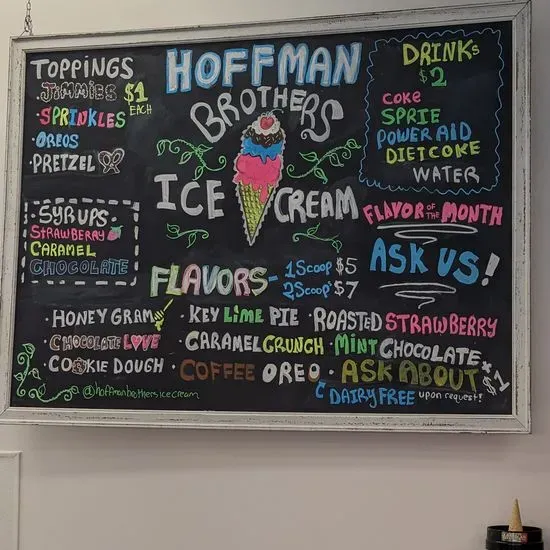 HOFFMAN
BROTHERS
ICE CREAM
TOPPINGS
·JIMMIES $1
EACH
·SPRINKLES
·OREOS
·PRETZEL
·SYRUPS·
STRAWBERRY
CARAMEL
CHOCOLATE
DRINKs
$2
COKE
SPRIE
POWERAID
DIET COKE
WATER
FLAVOR OF THE MONTH
ASK US!
FLAVORS- 1 SCOOP $5
2 SCOOP'S $7
·HONEY GRAM ·KEY LIME PIE ·ROASTED STRAWBERRY
·CHOCOLATE LOVE ·CARAMEL CRUNCH ·MINT CHOCOLATE
·COOKIE DOUGH ·COFFEE OREO ·ASK ABOUT
DAIRY FREE upon request!
@hoffmanbrothersicecream